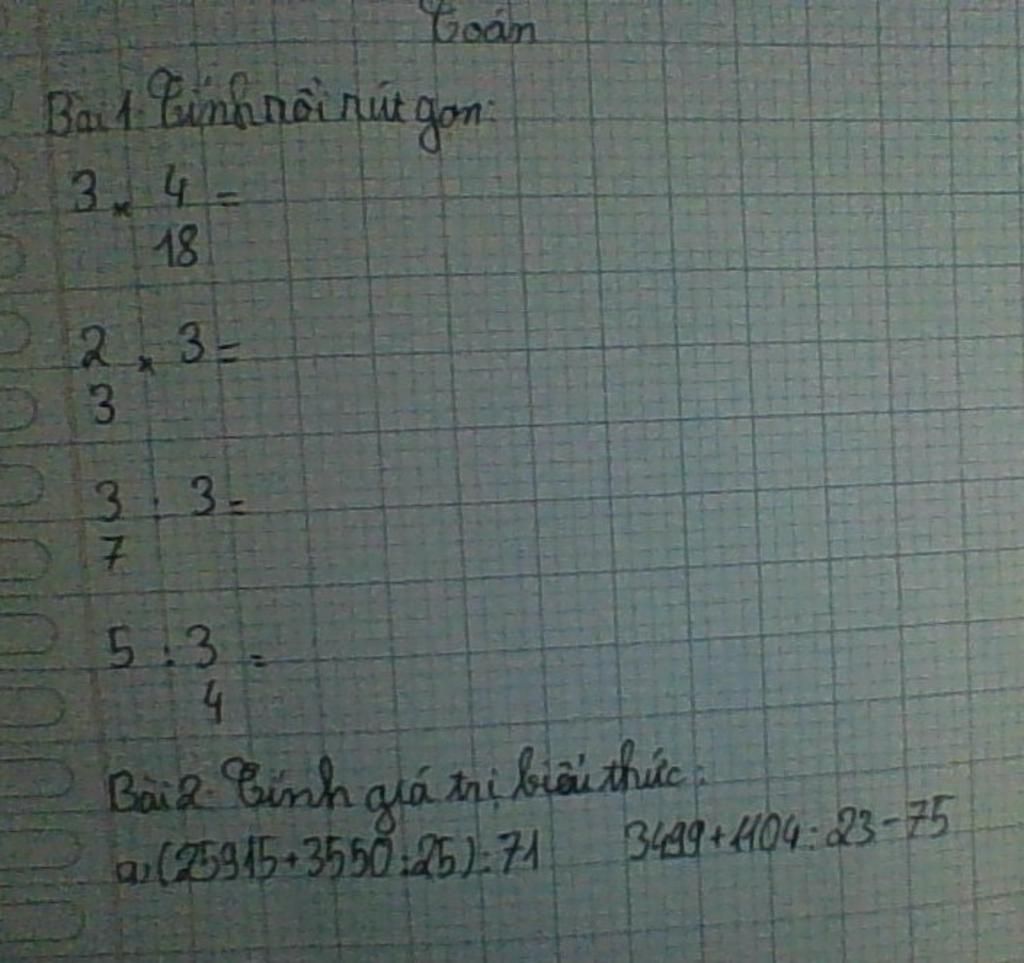 Toán
Bài 1. Tính rồi rút gọn:
3 x 4 =
18
2 x 3 =
3
3 : 3 =
7
5 : 3 =
4
Bài 2. Tính giá trị biểu thức:
a, (25915 + 3550 : 25) : 71 3499 + 1104 : 23 - 75